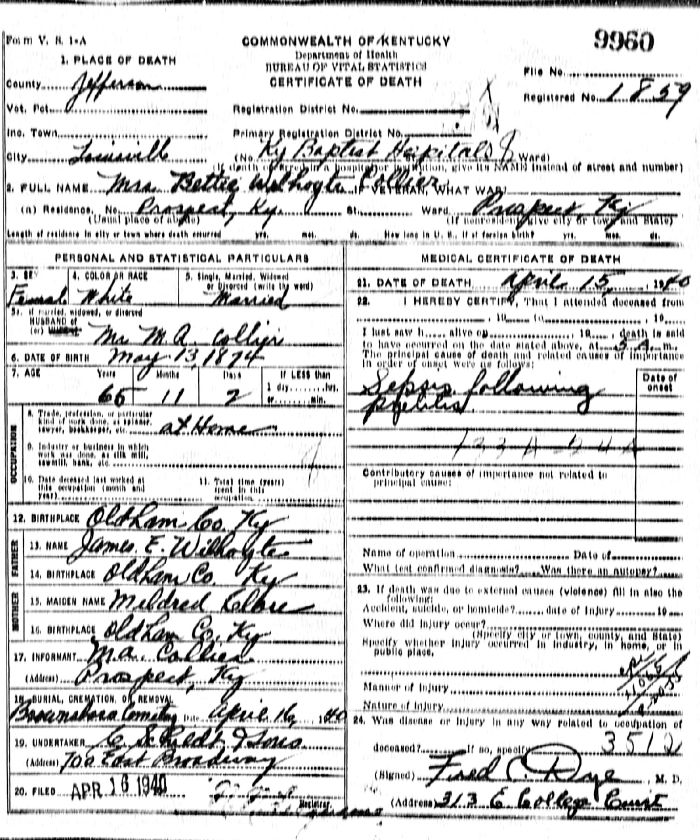 Form V. S. 1-A
COMMONWEALTH OF KENTUCKY
9960
Department of Health
BUREAU OF VITAL STATISTICS
CERTIFICATE OF DEATH
File No.
Registered No. 1859
1. PLACE OF DEATH
County Jefferson
Vot. Pct.
Registration District No.
Inc. Town
Primary Registration District No.
City Louisville
(No. Ky Baptist Ward)
(If death occurred in a hospital or institution, give its NAME instead of street and number)
2. FULL NAME Mrs. Bettie Wilhoyte Collier WHAT WAR
(a) Residence. No. Prospect, Ky. St. Ward. Prospect Ky
(Usual place of abode) (If nonresident give city or town and State)
Length of residence in city or town where death occurred yrs. mos. ds. How long in U. S., if of foreign birth? yrs. mos. ds.
PERSONAL AND STATISTICAL PARTICULARS
3. SEX 4. COLOR OR RACE 5. Single, Married, Widowed or Divorced (write the word)
Female White Married
5a. If married, widowed, or divorced
HUSBAND of
(or)
Mr M.A. Collier
6. DATE OF BIRTH May 13, 1874
7. AGE Years Months Days If LESS than
65 11 2 1 day, hrs. or min.
OCCUPATION
8. Trade, profession, or particular kind of work done, as spinner, sawyer, bookkeeper, etc. at Home
9. Industry or business in which work was done, as silk mill, sawmill, bank, etc.
10. Date deceased last worked at this occupation (month and year)
11. Total time (years) spent in this occupation
12. BIRTHPLACE Oldham Co. Ky
FATHER
13. NAME James E. Wilhoyte
14. BIRTHPLACE Oldham Co. Ky
MOTHER
15. MAIDEN NAME Mildred Clore
16. BIRTHPLACE Oldham Co. Ky
17. INFORMANT M.A. Collier
(Address) Prospect, Ky
18. BURIAL, CREMATION, OR REMOVAL
Brownsboro Cemetery Date April 16, 1940
19. UNDERTAKER & Sons
(Address) 700 East Broadway
20. FILED APR 16 1940
Registrar
MEDICAL CERTIFICATE OF DEATH
21. DATE OF DEATH April 15, 1940
22. I HEREBY CERTIFY, That I attended deceased from
, 19 to , 19
I last saw h alive on , 19 , death is said
to have occurred on the date stated above, at 5 A m.
The principal cause of death and related causes of importance
in order of onset were as follows:
Date of onset
Sepsis following
pyelitis
133 A
Contributory causes of importance not related to
principal cause:
Name of operation Date of
What test confirmed diagnosis? Was there an autopsy?
23. If death was due to external causes (violence) fill in also the
following:
Accident, suicide, or homicide? date of injury 19
Where did injury occur?
(Specify city or town, county, and State)
Specify whether injury occurred in industry, in home, or in
public place.
Manner of injury
Nature of injury
24. Was disease or injury in any way related to occupation of
deceased? If so, specify 3512
(Signed) Fred C. Dye M. D.
(Address) 313 E College Court